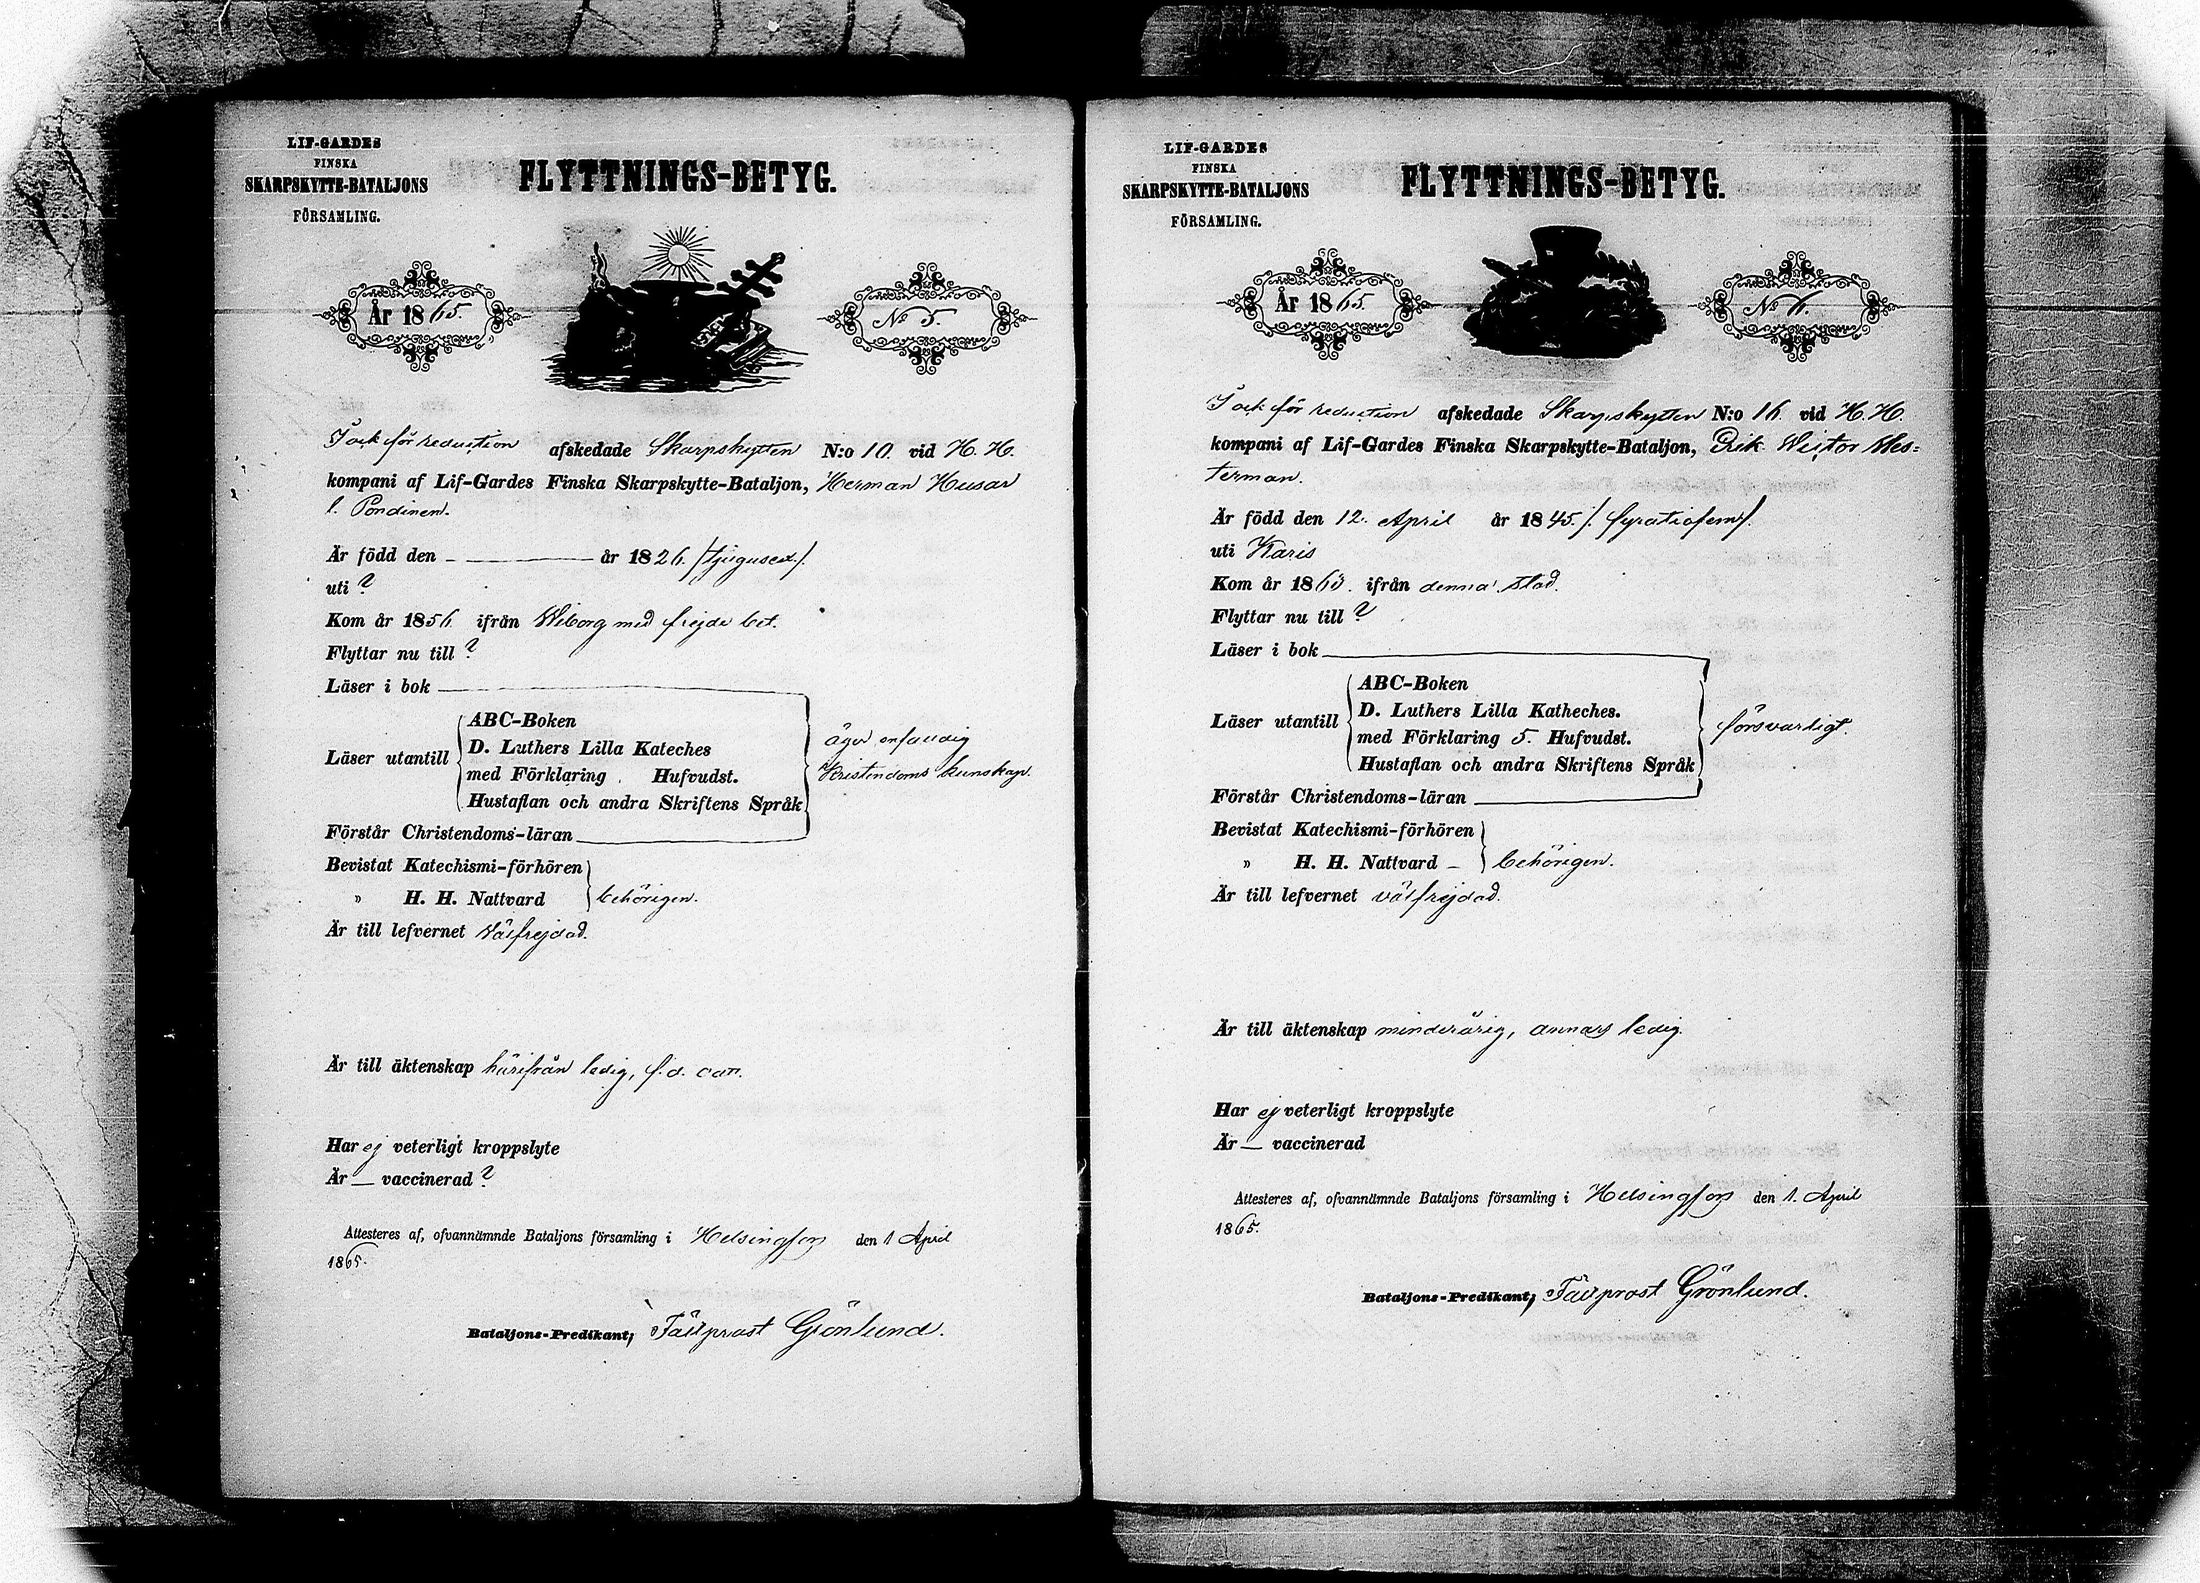 LIF-GARDES
FINSKA
SKARPSKYTTE-BATALJONS
FÖRSAMLING.
FLYTTNINGS-BETYG.
År 1865.
No 5.
I och för reduction afskedade Skarpskytten N:o 10. vid H. H.
kompani af Lif-Gardes Finska Skarpskytte-Bataljon, Herman Husar
l. Pondinen.
Är född den — år 1826. /tjugusex/.
uti ?
Kom år 1856 ifrån Wiborg med frejde bet.
Flyttar nu till ?
Läser i bok
ABC-Boken
Läser utantill D. Luthers Lilla Kateches
med Förklaring . Hufvudst.
Hustaflan och andra Skriftens Språk
äger enfaldig
Kristendoms kunskap.
Förstår Christendoms-läran
Bevistat Katechismi-förhören
„ H. H. Nattvard behörigen.
Är till lefvernet Välfrejdad.
Är till äktenskap härifrån ledig, f. d. can.
Har ej veterligt kroppslyte
Är — vaccinerad ?
Attesteres af, ofvannämnde Bataljons församling i Helsingfors den 1 April
1865.
Bataljons-Predikant, Fältprost Grönlund.
LIF-GARDES
FINSKA
SKARPSKYTTE-BATALJONS
FÖRSAMLING.
FLYTTNINGS-BETYG.
År 1865.
No 6.
I och för reduction afskedade Skarpskytten N:o 16 vid H. H.
kompani af Lif-Gardes Finska Skarpskytte-Bataljon, Erik Victor Wes=
terman.
Är född den 12. April år 1845. /. fyratiofem/.
uti Karis
Kom år 1863. ifrån denna stad.
Flyttar nu till ?
Läser i bok
ABC-Boken
Läser utantill D. Luthers Lilla Katheches.
med Förklaring 5. Hufvudst.
Hustaflan och andra Skriftens Språk
försvarligt.
Förstår Christendoms-läran
Bevistat Katechismi-förhören
„ H. H. Nattvard — behörigen.
Är till lefvernet välfrejdad.
Är till äktenskap minderårig, annars ledig.
Har ej veterligt kroppslyte
Är — vaccinerad
Attesteres af, ofvannämnde Bataljons församling i Helsingfors den 1. April
1865.
Bataljons-Predikant, Fältprost Grönlund.